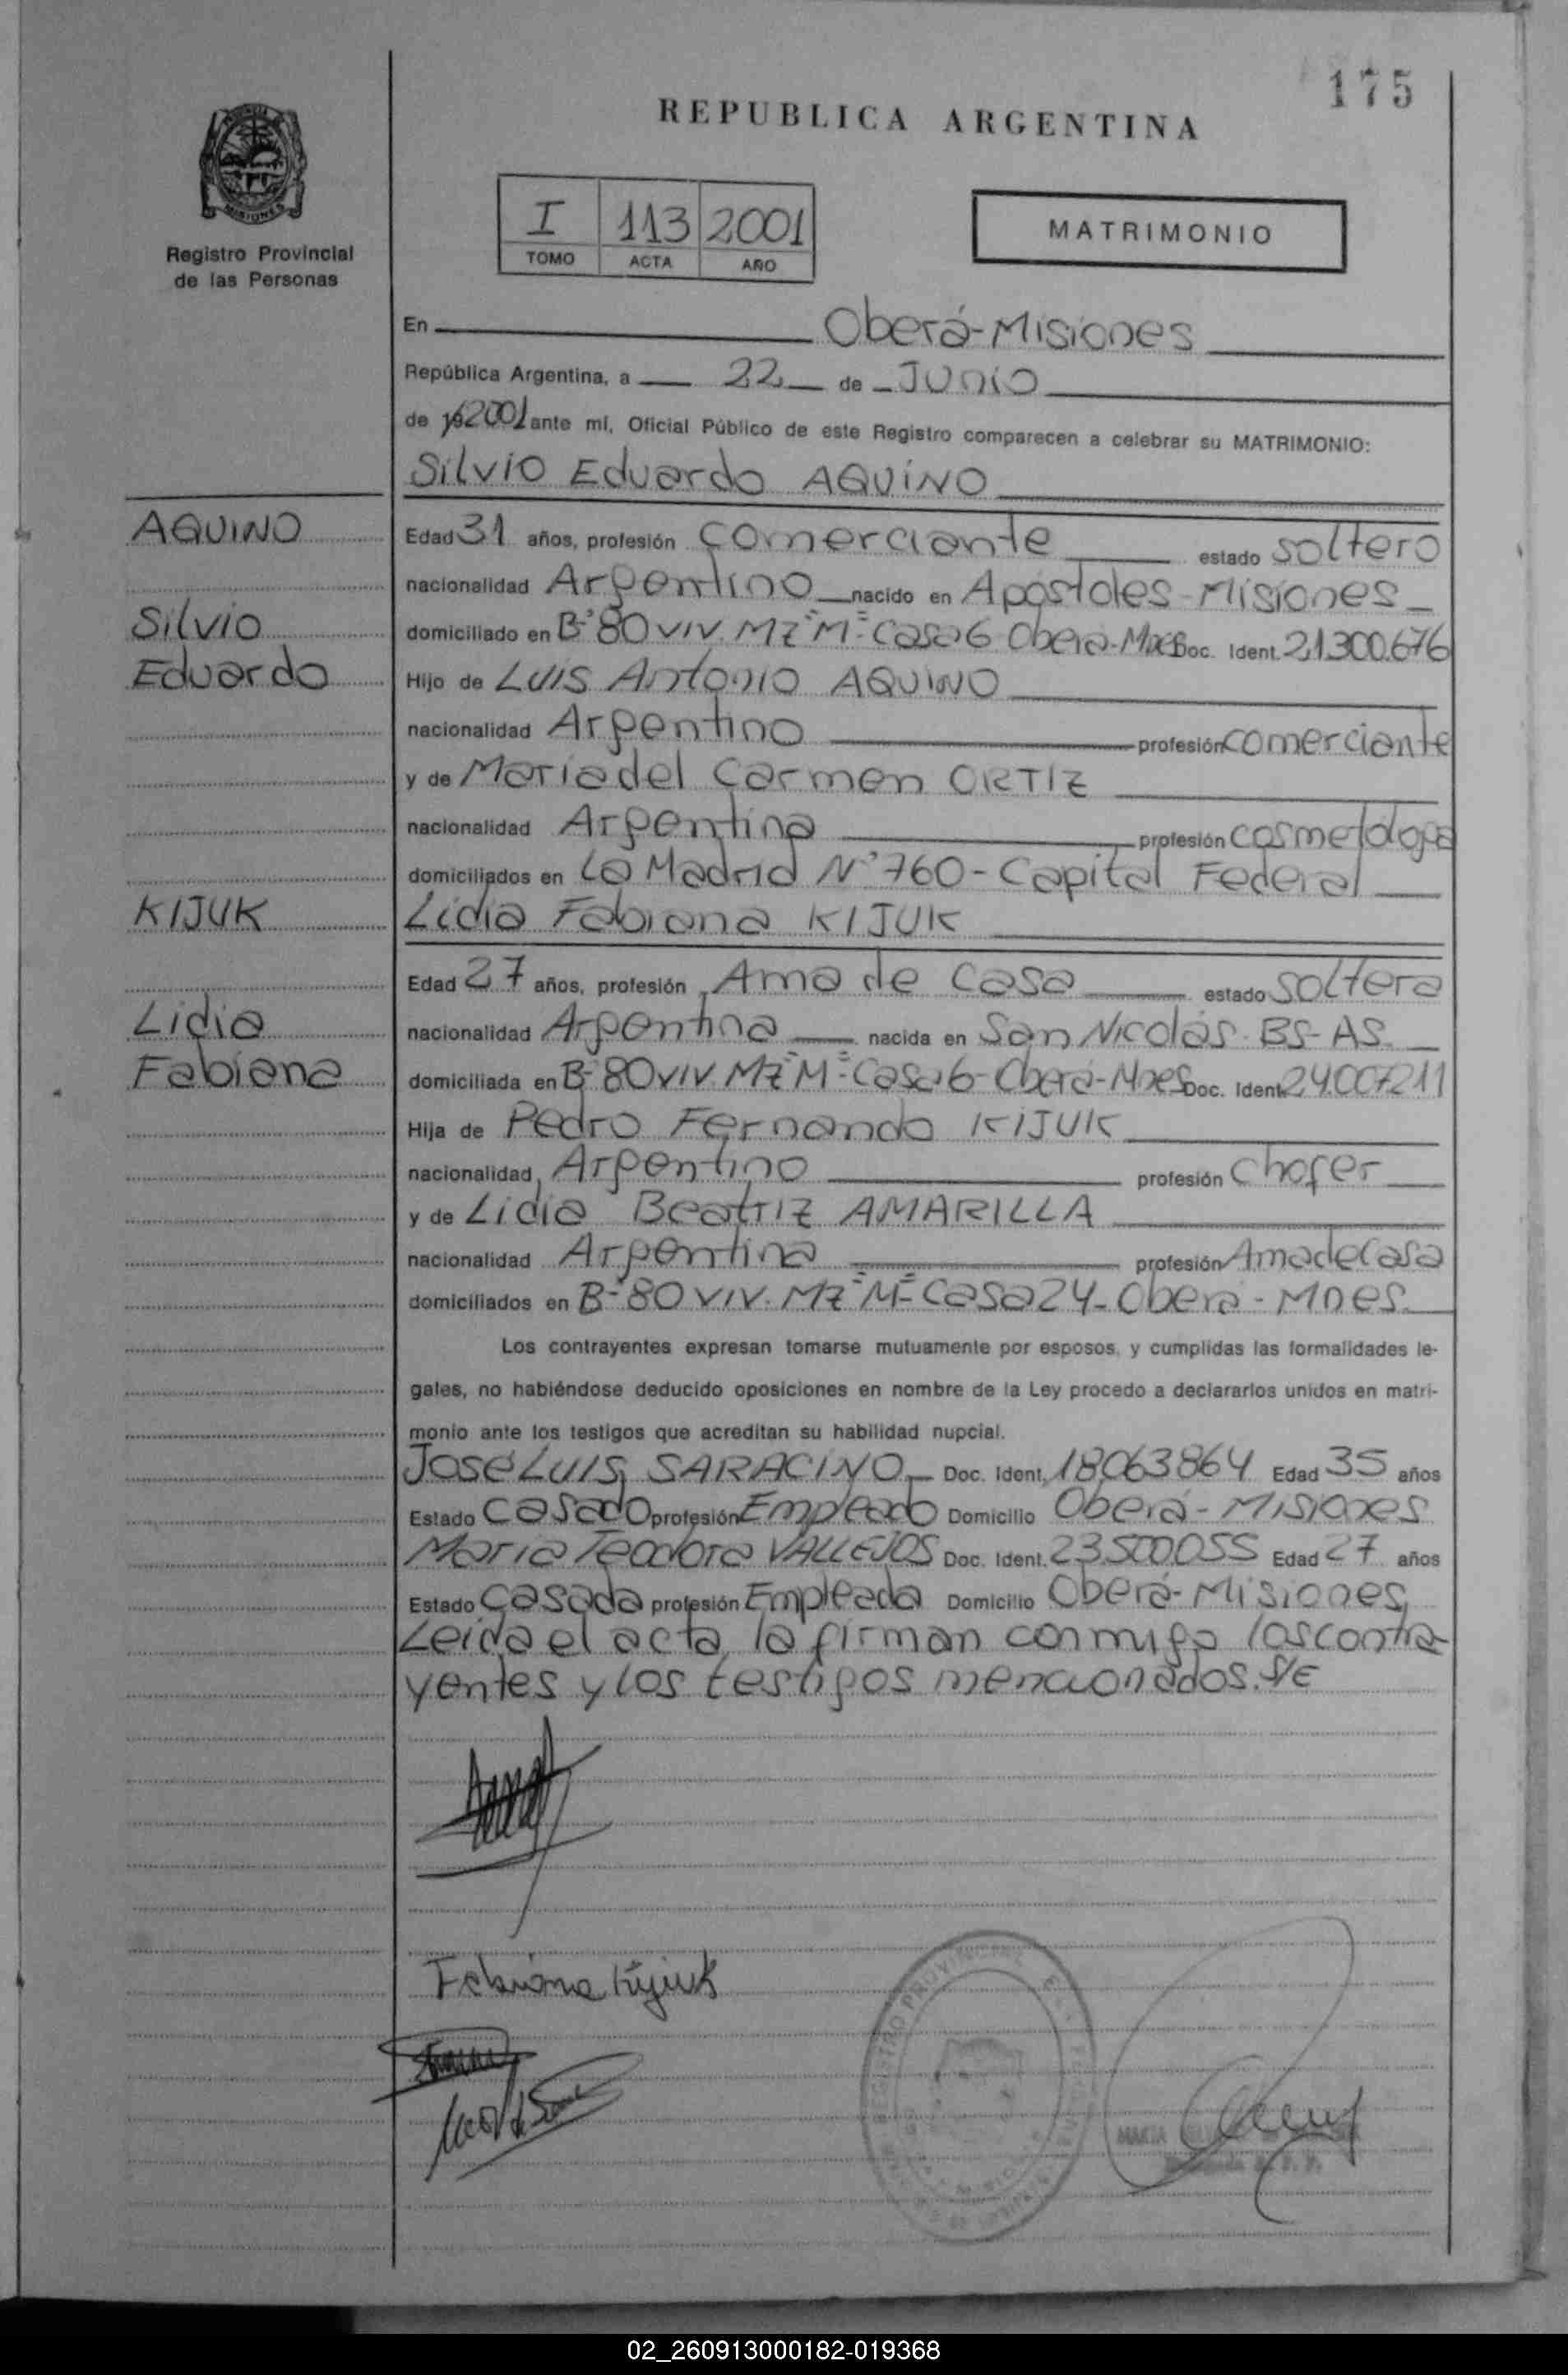 175
REPUBLICA ARGENTINA
MISIONES
Registro Provincial
de las Personas
I 113 2001
TOMO ACTA AÑO
MATRIMONIO
En Oberá-Misiones
República Argentina, a 22 de Junio
de 192001 ante mi, Oficial Público de este Registro comparecen a celebrar su MATRIMONIO:
Silvio Eduardo AQUINO
AQUINO
Edad 31 años, profesión comerciante estado soltero
nacionalidad Argentino nacido en Apóstoles-Misiones
Silvio
domiciliado en B-°80 VIV. MZ "M" Casa 6 Oberá-Mnes Doc. Ident. 21.300.676
Eduardo
Hijo de Luis Antonio AQUINO
nacionalidad Argentino profesión comerciante
y de Maria del Carmen ORTIZ
nacionalidad Argentina profesión cosmetologa
domiciliados en La Madrid N°760-Capital Federal
KIJUK
Lidia Fabiana KIJUK
Edad 27 años, profesión Ama de Casa estado soltera
Lidia
nacionalidad Argentina nacida en San Nicolás-BS-AS.
Fabiana
domiciliada en B-°80 VIV. MZ "M" Casa 6-Oberá-Mnes Doc. Ident. 24.007.211
Hija de Pedro Fernando KIJUK
nacionalidad Argentino profesión Chofer
y de Lidia Beatriz AMARILLA
nacionalidad Argentina profesión Ama de Casa
domiciliados en B-°80 VIV. MZ "M" Casa 24-Oberá-Mnes.
Los contrayentes expresan tomarse mutuamente por esposos, y cumplidas las formalidades le-
gales, no habiéndose deducido oposiciones en nombre de la Ley procedo a declararlos unidos en matri-
monio ante los testigos que acreditan su habilidad nupcial.
José Luis SARACINO Doc. Ident. 18063864 Edad 35 años
Estado Casado profesión Empleado Domicilio Oberá-Misiones
Maria Teodora VALLEJOS Doc. Ident. 23.500.055 Edad 27 años
Estado Casada profesión Empleada Domicilio Oberá-Misiones
Leida el acta, la firman conmigo los contra-
yentes y los testigos mencionados. S/E
Fabiana Kijuk
REGISTRO PROVINCIAL
MARIA
02_260913000182-019368